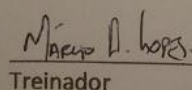 Márcio D. Lopes
Treinador